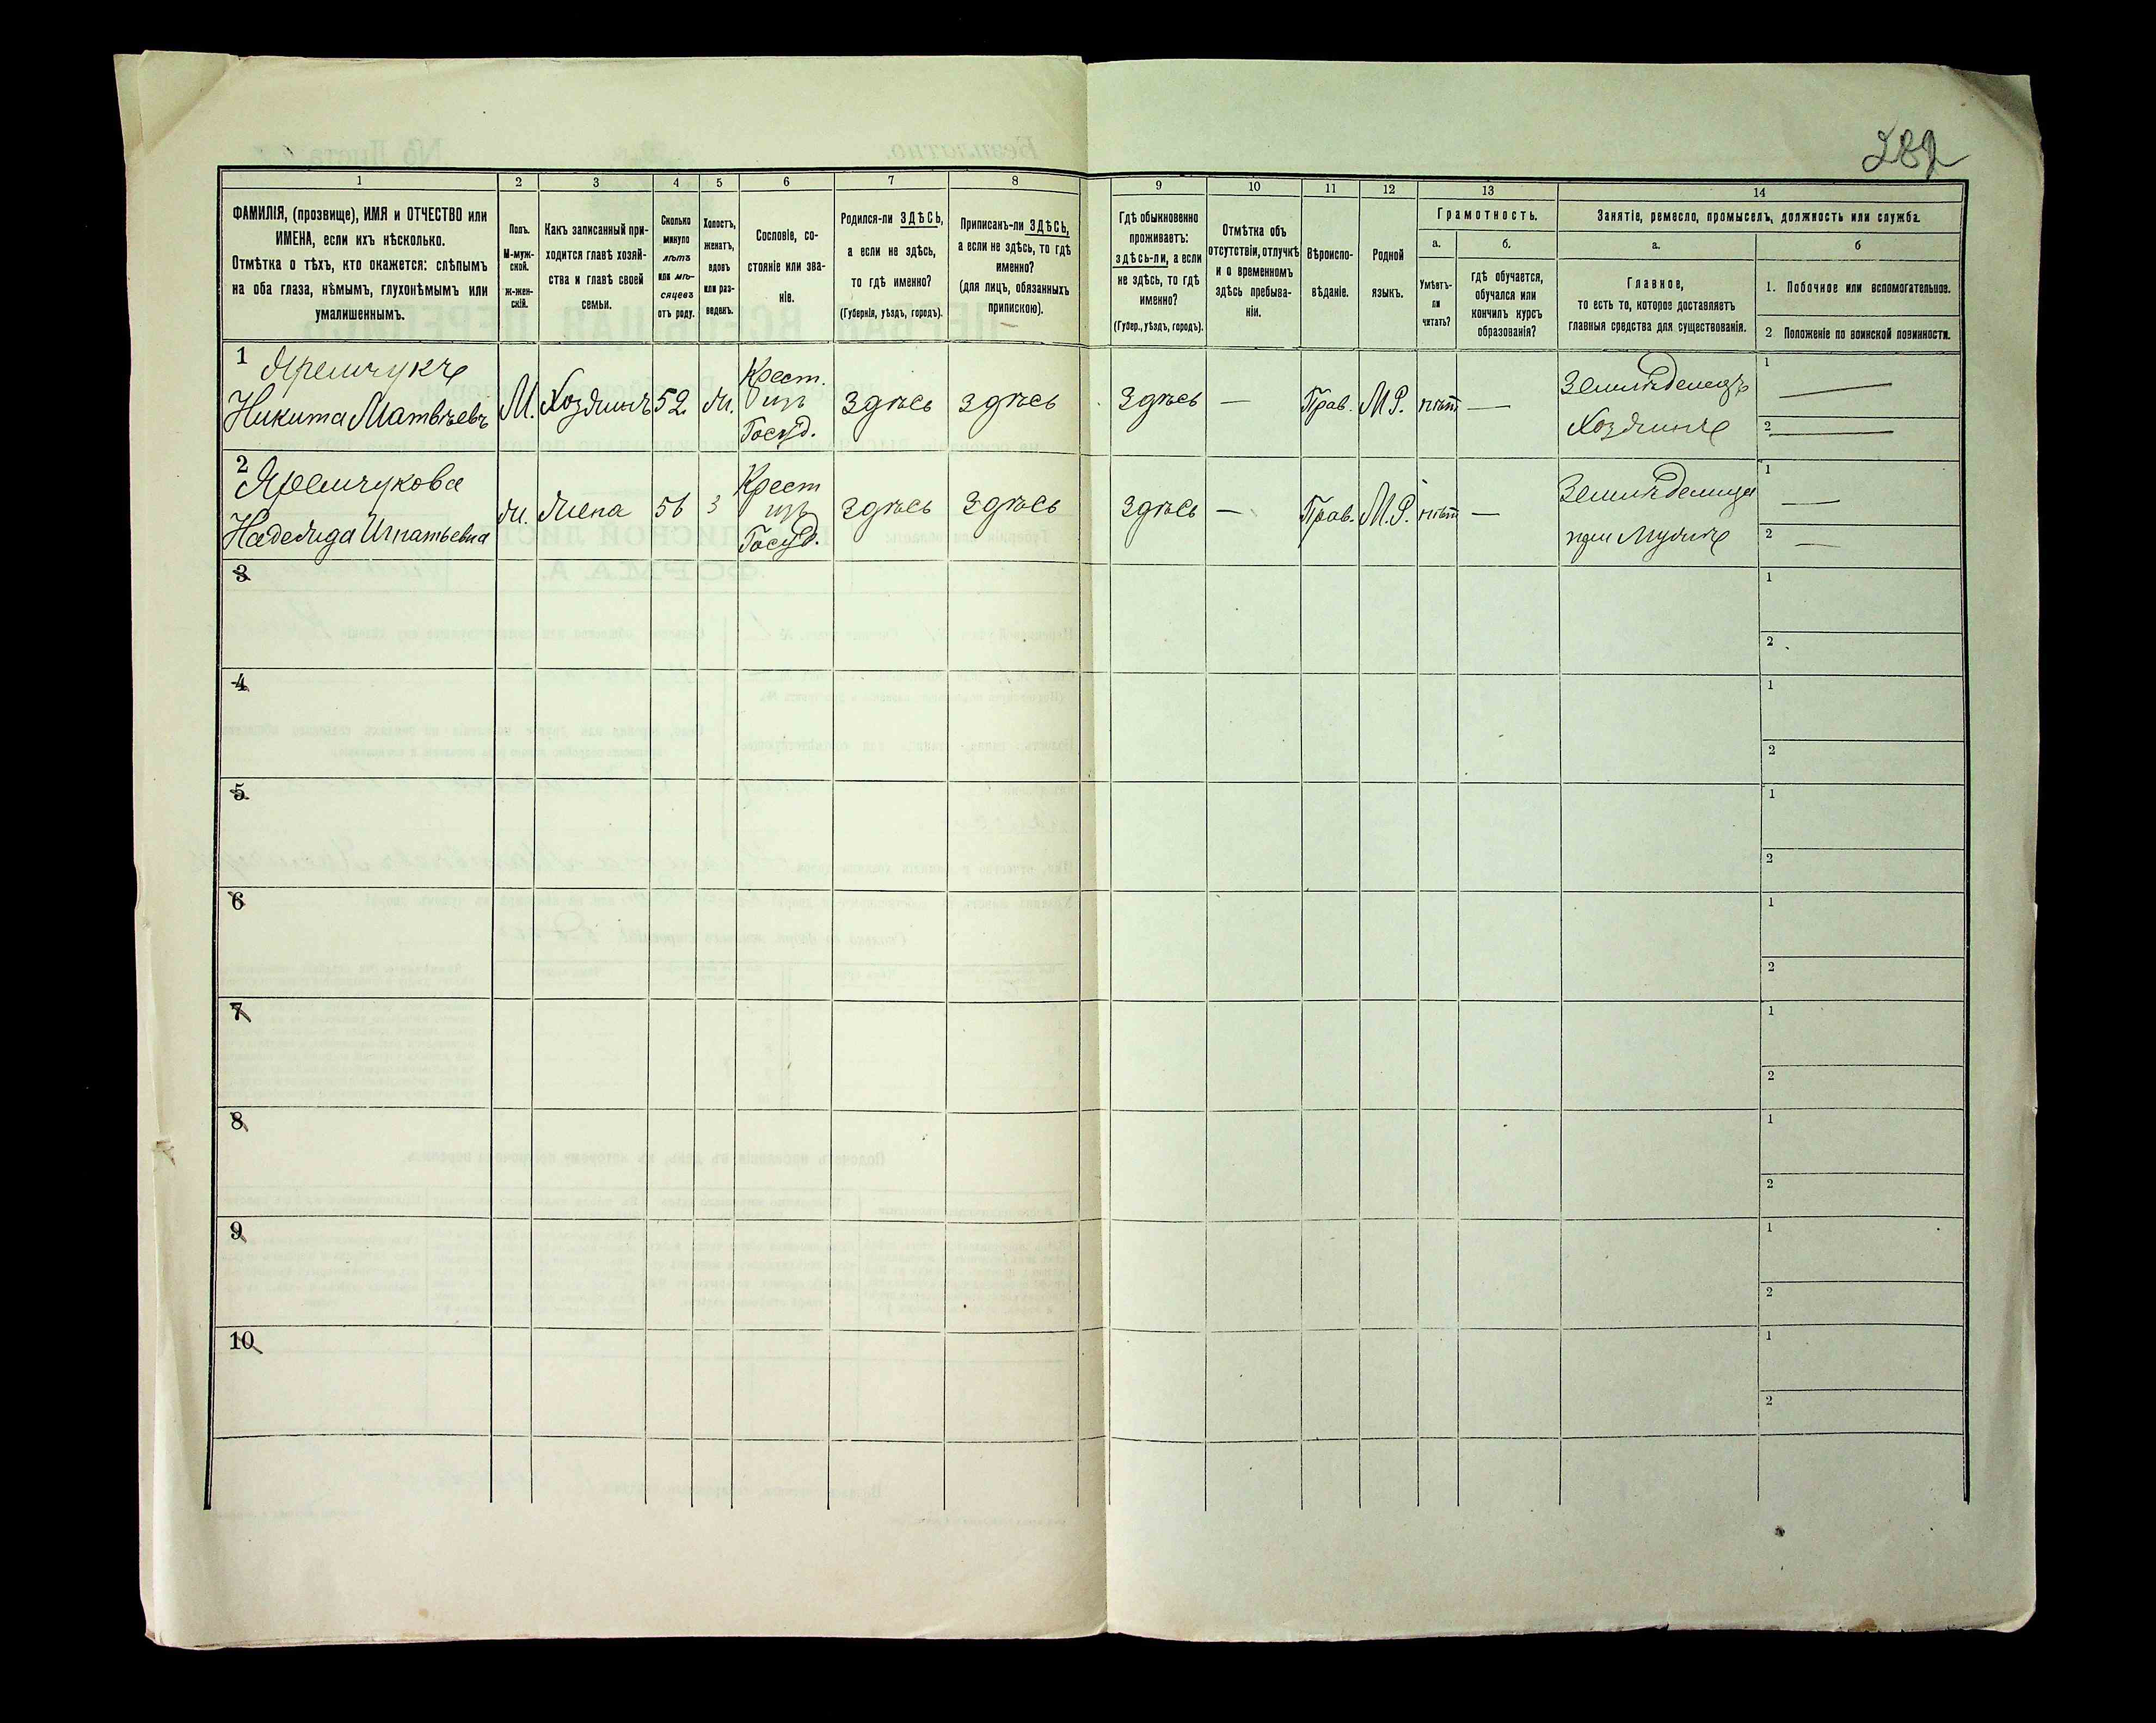 282
1 2 3 4 5 6 7 8 9 10 11 12 13 14
ФАМИЛІЯ, (прозвище), ИМЯ и ОТЧЕСТВО или
ИМЕНА, если ихъ нѣсколько.
Отмѣтка о тѣхъ, кто окажется: слѣпымъ
на оба глаза, нѣмымъ, глухонѣмымъ или
умалишеннымъ.
Полъ.
М-муж-
ской.
ж-жен-
скій.
Какъ записанный при-
ходится главѣ хозяй-
ства и главѣ своей
семьи.
Сколько
минуло
лѣтъ
или мѣ-
сяцевъ
отъ роду.
Холостъ,
женатъ,
вдовъ
или раз-
веденъ.
Сословіе, со-
стояніе или зва-
ніе.
Родился-ли ЗДѢСЬ,
а если не здѣсь,
то гдѣ именно?
(Губернія, уѣздъ, городъ).
Приписанъ-ли ЗДѢСЬ,
а если не здѣсь, то гдѣ
именно?
(для лицъ, обязанныхъ
припискою).
Гдѣ обыкновенно
проживаетъ:
здѣсь-ли, а если
не здѣсь, то гдѣ
именно?
(Губер., уѣздъ, городъ).
Отмѣтка объ
отсутствіи, отлучкѣ
и о временномъ
здѣсь пребыва-
ніи.
Вѣроиспо-
вѣданіе.
Родной
языкъ.
Грамотность.
а.
Умѣетъ-
ли
читать?
б.
гдѣ обучается,
обучался или
кончилъ курсъ
образованія?
Занятіе, ремесло, промыселъ, должность или служба.
а.
Главное,
то есть то, которое доставляетъ
главныя средства для существованія.
б
1. Побочное или вспомогательное.
2 Положеніе по воинской повинности.
1
Яремчукъ
Никита Матвѣевъ
М.
Хозяинъ
52
Ж.
Крест.
изъ
Госуд.
Здѣсь
Здѣсь
Здѣсь
—
Прав.
М Р.
нѣт
—
Земледелецъ
Хозяинъ
1 —
2 —
2
Яремчукова
Надежда Игнатьевна
Ж.
Жена
56
З
Крест
изъ
Госуд.
Здѣсь
Здѣсь
Здѣсь
—
Прав.
М.Р.
нѣт
—
при Мужѣ
1 —
2 —
3
1
2
4
1
2
5
1
2
6
1
2
7
1
2
8
1
2
9
1
2
10
1
2